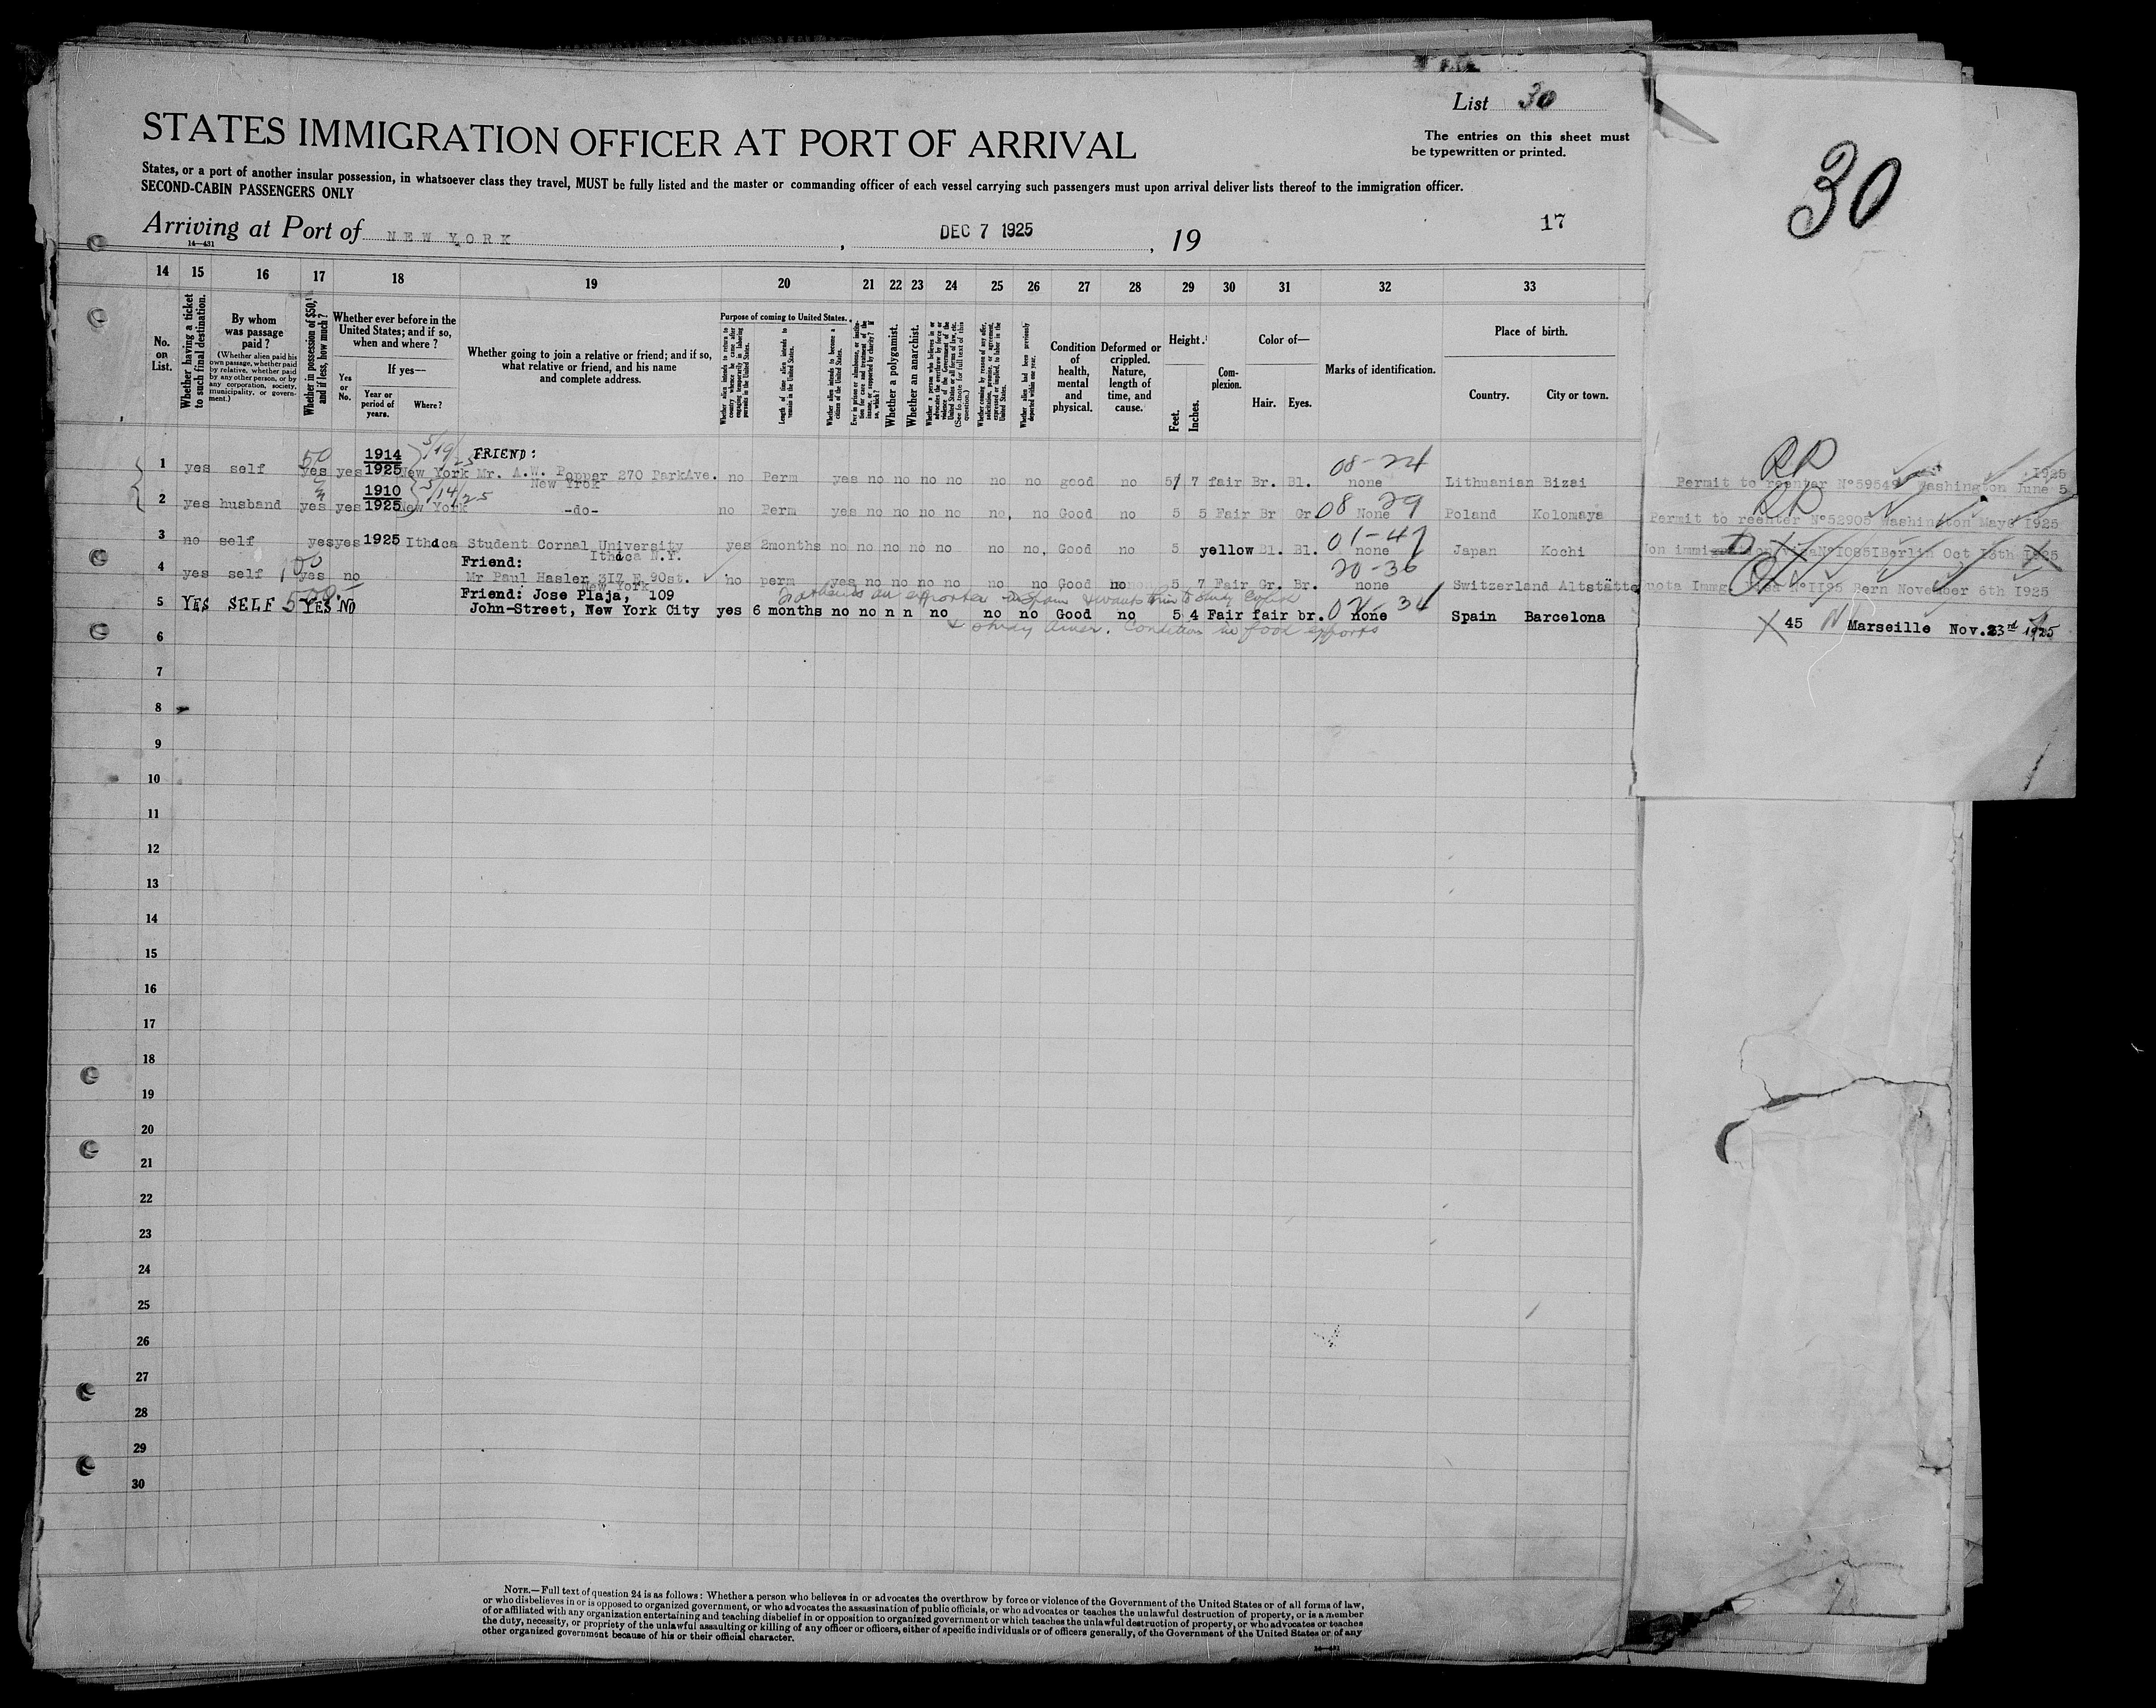 List 30
STATES IMMIGRATION OFFICER AT PORT OF ARRIVAL
The entries on this sheet must
be typewritten or printed.
30
States, or a port of another insular possession, in whatsoever class they travel, MUST be fully listed and the master or commanding officer of each vessel carrying such passengers must upon arrival deliver lists thereof to the immigration officer.
SECOND-CABIN PASSENGERS ONLY
Arriving at Port of NEW YORK, DEC 7 1925, 19
17
14—431
14 15 16 17 18 19 20 21 22 23 24 25 26 27 28 29 30 31 32 33
No. on List.
Whether having a ticket to such final destination.
By whom was passage paid?
(Whether alien paid his own passage, whether paid by relative, whether paid by any other person, or by any corporation, society, municipality, or government.)
Whether in possession of $50, and if less, how much?
Whether ever before in the United States; and if so, when and where?
Yes or No.
If yes—
Year or period of years.
Where?
Whether going to join a relative or friend; and if so, what relative or friend, and his name and complete address.
Purpose of coming to United States.
Whether alien intends to return to country whence he came after engaging temporarily in laboring pursuits in the United States.
Length of time alien intends to remain in the United States.
Whether alien intends to become a citizen of the United States.
Ever in prison or almshouse, or institution for care and treatment of the insane, or supported by charity? If so, which?
Whether a polygamist.
Whether an anarchist.
Whether a person who believes in or advocates the overthrow by force or violence of the Government of the United States or all forms of law, etc. (See footnote for full text of this question.)
Whether coming by reason of any offer, solicitation, promise, or agreement, expressed or implied, to labor in the United States.
Whether alien had been previously deported within one year.
Condition of health, mental and physical.
Deformed or crippled. Nature, length of time, and cause.
Height.
Feet.
Inches.
Complexion.
Color of—
Hair.
Eyes.
Marks of identification.
Place of birth.
Country.
City or town.
50 1914 5/19/25 FRIEND: 08-24 RP 1925
1 yes self yes yes 1925 New York Mr. A.W. Popper 270 ParkAve. no Perm yes no no no no no no good no 5 7 fair Br. Bl. none Lithuanian Bizai Permit to reenter N°59549 Washington June 5
New Yrok
1910 5/14/25 08 29 RP
2 yes husband yes yes 1925 New York -do- no Perm yes no no no no no. no Good no 5 5 Fair Br Gr. None Poland Kolomaya Permit to reenter N°52905 Washington May6 1925
01-47
3 no self yes yes 1925 Ithaca Student Cornal University yes 2months no no no no no no no. Good no 5 yellow Bl. Bl. none Japan Kochi Berlin Oct 1925
Ithaca N.Y.
100 Friend: 20-36
4 yes self yes no Mr Paul Hasler 317 E 90st. no perm yes no no no no no no Good no 5 7 Fair Gr. Br. none Switzerland Altstätte N°1195 Bern November 6th 1925
New York
500 Friend: Jose Plaja, 109 Father is an exporter in Spain & wants him to study English
5 YES SELF YES NO John-Street, New York City yes 6 months no no n n no no no Good no 5 4 Fair fair br. none Spain Barcelona
& study Amer. Conditions in food exports
X 45 Marseille Nov. 23rd 1925
6
7
8
9
10
11
12
13
14
15
16
17
18
19
20
21
22
23
24
25
26
27
28
29
30
NOTE.—Full text of question 24 is as follows: Whether a person who believes in or advocates the overthrow by force or violence of the Government of the United States or of all forms of law,
or who disbelieves in or is opposed to organized government, or who advocates the assassination of public officials, or who advocates or teaches the unlawful destruction of property, or is a member
of or affiliated with any organization entertaining and teaching disbelief in or opposition to organized government or which teaches the unlawful destruction of property, or who advocates or teaches
the duty, necessity, or propriety of the unlawful assaulting or killing of any officer or officers, either of specific individuals or of officers generally, of the Government of the United States or of any
other organized government because of his or their official character.
14—431